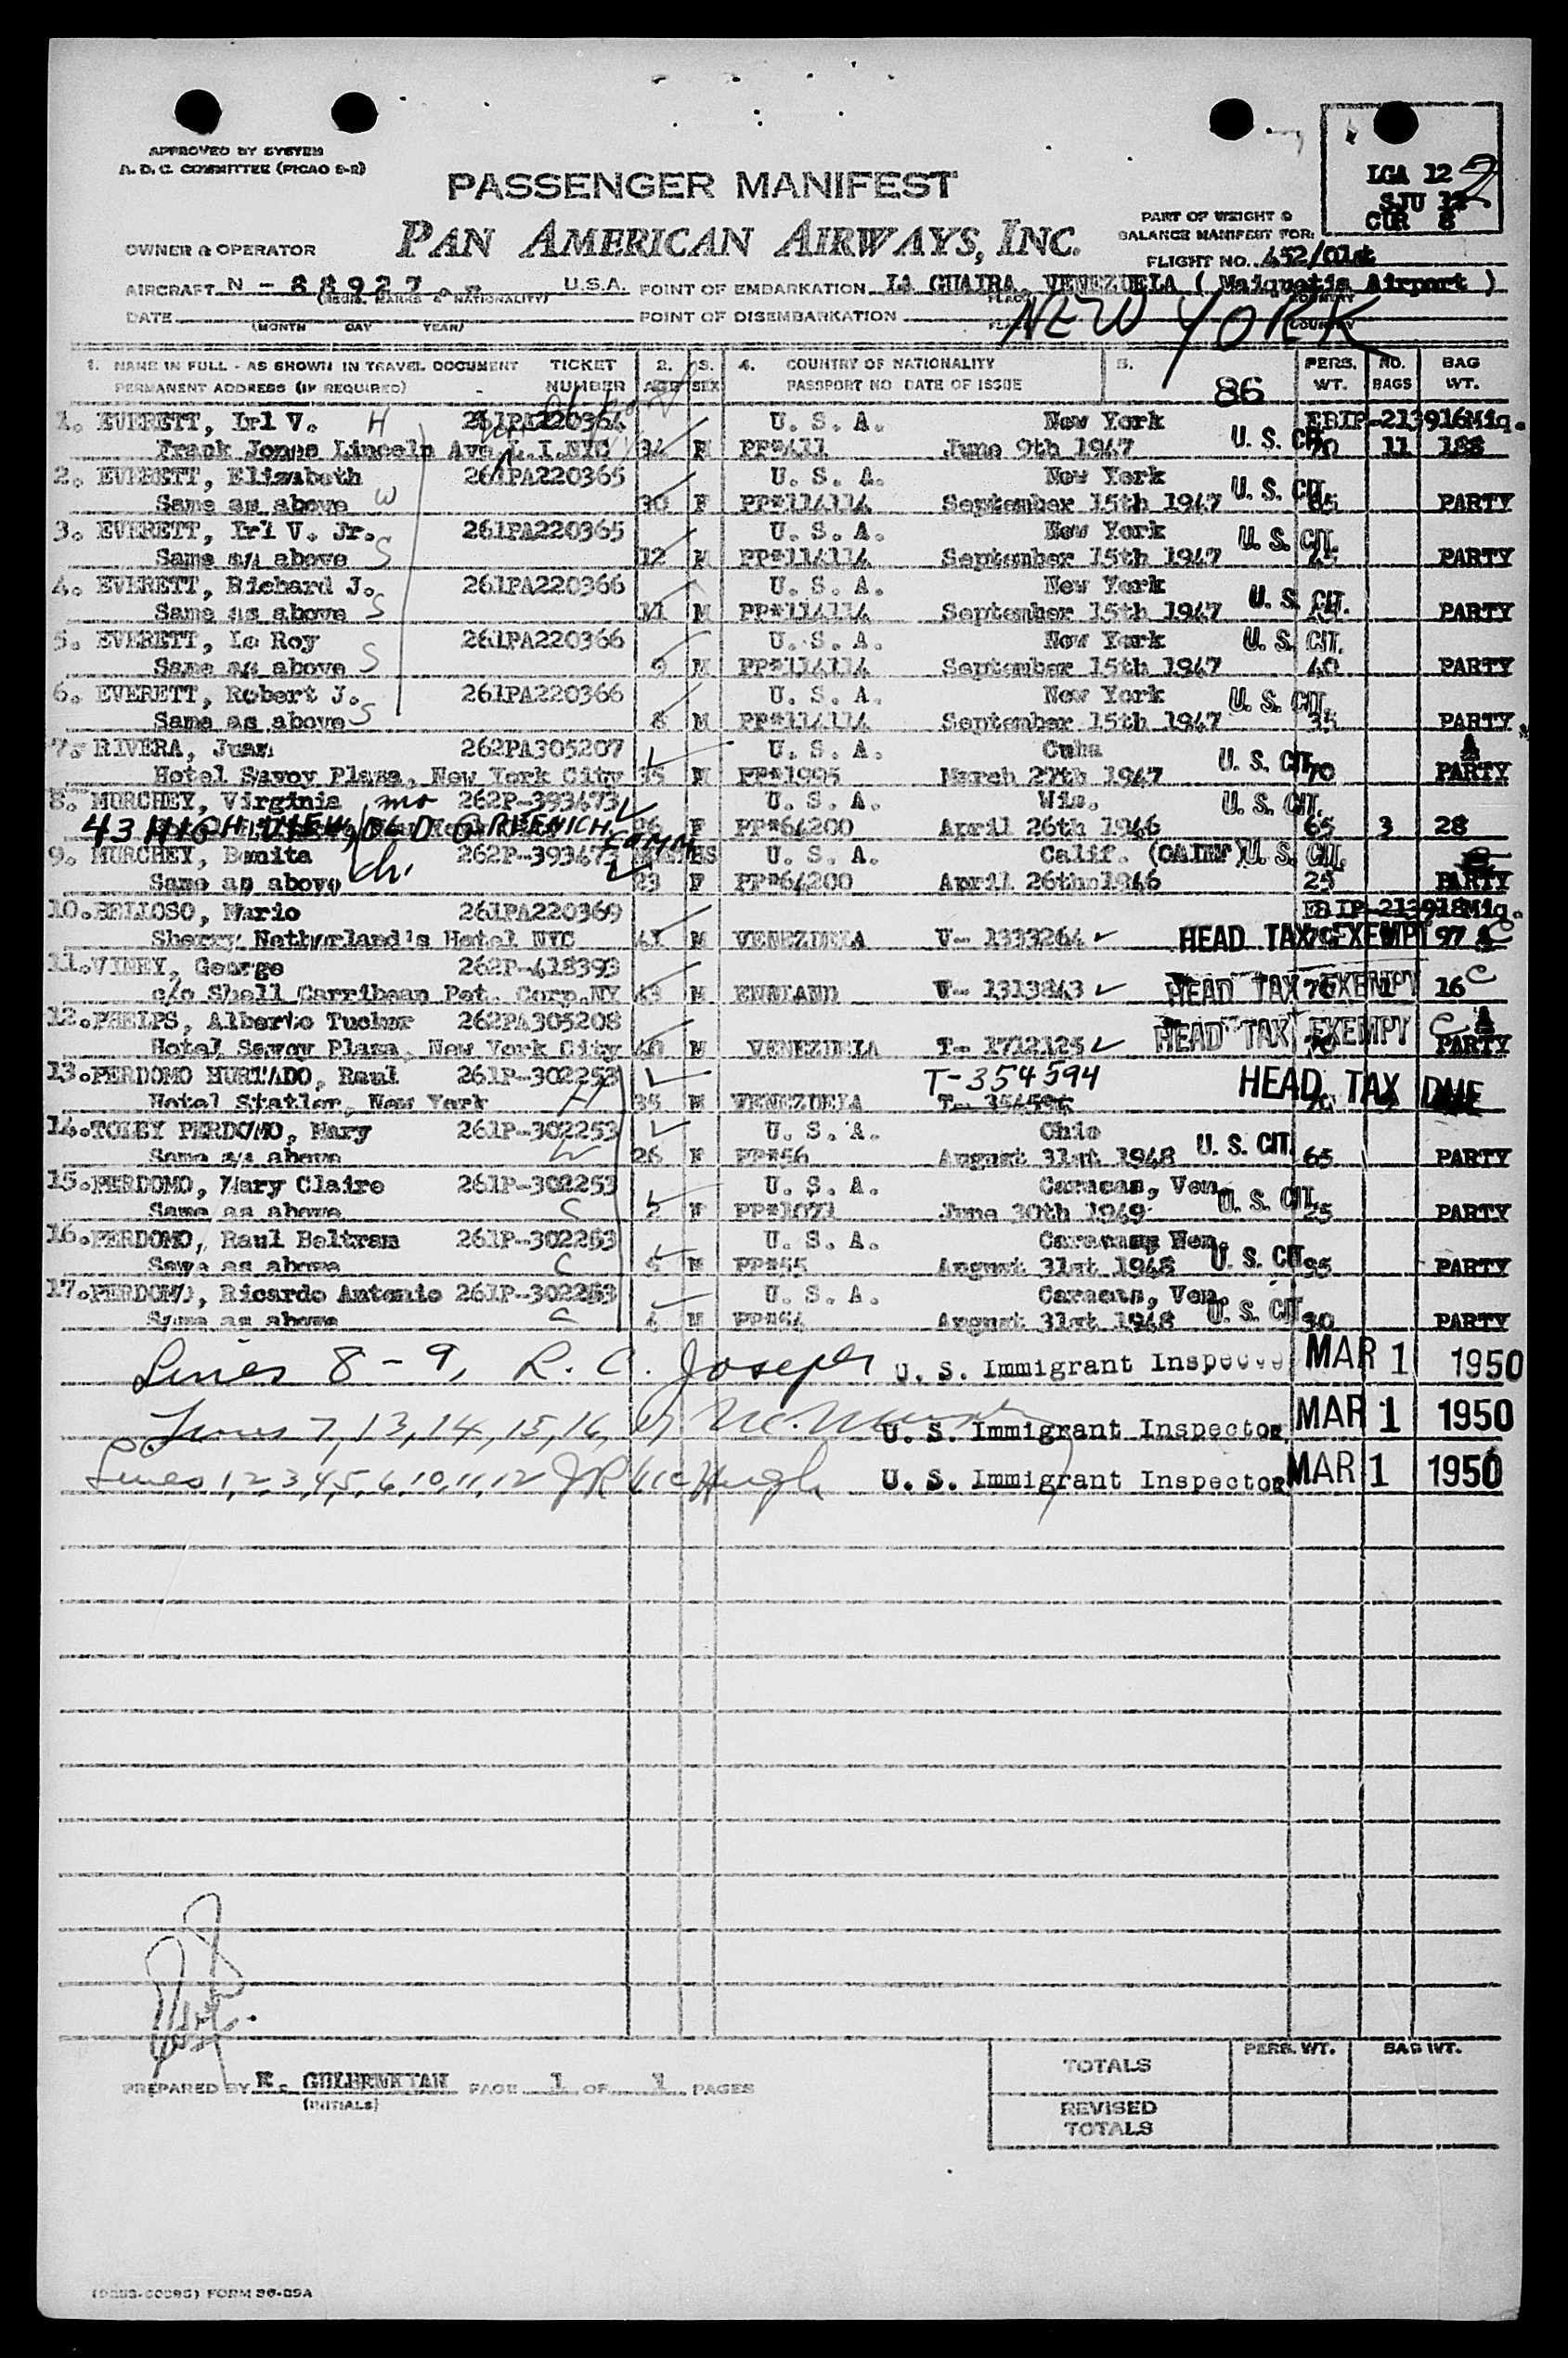 APPROVED BY SYSTEM
A. D. C. COMMITTEE (PICAO S-R)
PASSENGER MANIFEST
LGA 12
SJU 12
CUR 8
2
OWNER & OPERATOR
PAN AMERICAN AIRWAYS, INC.
PART OF WEIGHT &
BALANCE MANIFEST FOR:
FLIGHT NO. 452/01st
AIRCRAFT N - 88927 U.S.A. POINT OF EMBARKATION LA GUAIRA, VENEZUELA ( Maiquetia Airport )
(REGIS. MARKS & NATIONALITY) PLACE COUNTRY
DATE POINT OF DISEMBARKATION NEW YORK
(MONTH DAY YEAR) PLACE COUNTRY
1. NAME IN FULL - AS SHOWN IN TRAVEL DOCUMENT TICKET 2. 3. 4. COUNTRY OF NATIONALITY 5. PERS. NO. BAG
PERMANENT ADDRESS (IF REQUIRED) NUMBER AGE SEX PASSPORT NO DATE OF ISSUE 86 WT. BAGS WT.
1. EVERETT, Irl V. H 261PA220364 U. S. A. New York EBIP-213916Miq.
Frank Jones Lincoln Ave L.I.NYC 34 M PP#411 June 9th 1947 U. S. CIT. 11 188
2. EVERETT, Elizabeth 261PA220365 U. S. A. New York
Same as above W 30 F PP#114114 September 15th 1947 U. S. CIT. PARTY
3. EVERETT, Irl V. Jr. 261PA220365 U. S. A. New York
Same as above S 12 M PP#114114 September 15th 1947 U. S. CIT. PARTY
4. EVERETT, Richard J. 261PA220366 U. S. A. New York
Same as above S 11 M PP#114114 September 15th 1947 U. S. CIT. PARTY
5. EVERETT, Le Roy 261PA220366 U. S. A. New York
Same as above S 9 M PP#114114 September 15th 1947 U. S. CIT. 40 PARTY
6. EVERETT, Robert J. 261PA220366 U. S. A. New York
Same as above S M PP#114114 September 15th 1947 U. S. CIT. 35 PARTY
7. RIVERA, Juan 262PA305207 U. S. A. Cuba
Hotel Savoy Plaza, New York City 35 M PP#1995 March 27th 1947 U. S. CIT. 70 PARTY
8. MURCHEY, Virginia mo 262P-393473 U. S. A. Wis. U. S. CIT.
43 HIGHVIEW, OLD GREENICH, CONN 26 F PP#64200 April 26th 1946 65 3 28
9. MURCHEY, Bonita ch. 262P-393473 MONTHS U. S. A. Calif. (CALIF) U. S. CIT.
Same as above 23 F PP#64200 April 26th 1946 25 PARTY
10. BELLOSO, Mario 261PA220369 EBIP-213918Miq.
Sherry Netherland's Hotel NYC 41 M VENEZUELA V- 1333264 HEAD TAX EXEMPT 97 C
11. VINEY, George 262P-418393
c/o Shell Carribean Pet. Corp.NY 43 M ENGLAND V- 1313843 HEAD TAX EXEMPT 16 C
12. PHELPS, Alberto Tucker 262PA305208
Hotel Savoy Plaza, New York City 40 M VENEZUELA T- 1712125 HEAD TAX EXEMPT C PARTY
13. PERDOMO HURTADO, Raul 261P-302253 T-354594
Hotel Statler, New York H 35 M VENEZUELA HEAD TAX DUE
14. TOLEY PERDOMO, Mary 261P-302253 U. S. A. Ohio
Same as above W 26 F PP#56 August 31st 1948 U. S. CIT. 65 PARTY
15. PERDOMO, Mary Claire 261P-302253 U. S. A. Caracas, Ven.
Same as above C 2 F PP#1071 June 30th 1949 U. S. CIT. 25 PARTY
16. PERDOMO, Raul Beltran 261P-302253 U. S. A. Caracas, Ven.
Same as above C 5 M PP#55 August 31st 1948 U. S. CIT. 35 PARTY
17. PERDOMO, Ricardo Antonio 261P-302253 U. S. A. Caracas, Ven.
Same as above C 4 M PP#54 August 31st 1948 U. S. CIT. 30 PARTY
Lines 8-9, R. C. Joseph U. S. Immigrant Inspector MAR 1 1950
Lines 7, 13, 14, 15, 16, 17 U. S. Immigrant Inspector. MAR 1 1950
Lines 1, 2, 3, 4, 5, 6, 10, 11, 12 JR McHugh U. S. Immigrant Inspector MAR 1 1950
PREPARED BY K. GULBENKIAN PAGE 1 OF 1 PAGES
(INITIALS)
PERS. WT. BAG WT.
TOTALS
REVISED
TOTALS
FORM 36-29A